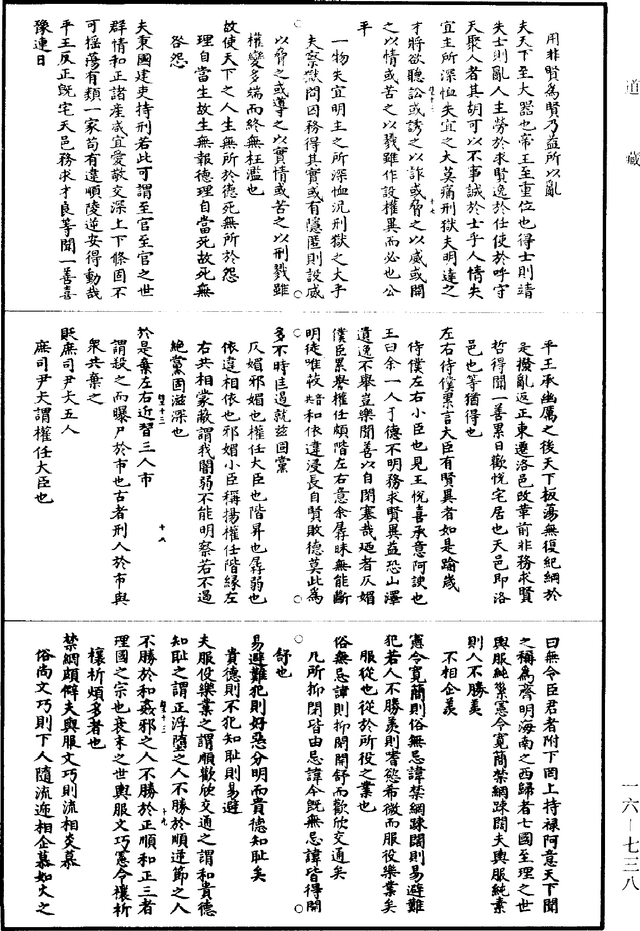 道藏
用非賢為賢乃益所以亂
夫天下至大器也帝王至重位也得士則靖
失士則亂人主勞於求賢逸於任使於呼守
天聚人者其胡可以不事誠於士乎人情失
宜主所深恤失宜之大莫痛刑獄夫明達之
才將欲聽訟或誘之以詐或脅之以威或開
之以情或苦之以戮雖作設權異而必也公
平
一物失宜明主之所深恤況刑獄之大乎
夫察獄問因務得其實或有隱匿則設威
以脅之或導之以實情或苦之以刑戮雖
權變多端而終無枉濫也
故使天下之人生無所於德死無所於怨
理自當生故生無報德理自當死故死無
咎怨
夫秉國建吏持刑若此可謂至官至官之世
群情和正諸產咸宜愛敬交深上下條固不
可搖蕩有類一家苟有違順陵逆安得動哉
平王反正既宅天邑務求才良等聞一善喜
豫連日
平王承幽厲之後天下板蕩無復紀綱於
是撥亂返正東遷洛邑改革前非務求賢
哲得聞一善累日歡悅宅居也天邑即洛
邑也等猶得也
左右侍僕累言大臣有賢異者如是踰歲
侍僕左右小臣也見王悅喜承意阿諛也
王曰余一人丁德不明務求賢異益恐山澤
遺逸不舉豈樂聞善以自閉塞哉廼者仄媚
僕臣累譽權任頗階左右意余孱昧無能斷
明徒唯䓇音共和依違浸長自賢敗德莫此為
多不時匡過就茲固黨
仄媚邪媚也權任大臣也階昇也孱弱也
依違相依也邪媚小臣稱揚權任階緣左
右共相蒙蔽謂我闇弱不能明察若不過
絕黨固滋深也
於是棄左右近習三人市
謂殺之而曝尸於市也古者刑人於市與
眾共棄之
貶庶司尹夫五人
庶司尹夫謂權任大臣也
曰無令臣君者附下罔上持祿阿意天下聞
之稱為齊明海南之西歸者七國至理之世
輿服純素憲令寬簡禁網踈闊夫輿服純素
則人不勝羨
不相企羨
憲令寬簡則俗無忌諱禁網踈闊則易避難
犯若人不勝羨則嗜慾希微而服役樂業矣
服從也從於所役之業也
俗無忌諱則抑閉開舒而歡欣交通矣
凡所抑閉皆由忌諱今既無忌諱皆得開
舒也
易避難犯則好惡分明而貴德知恥矣
貴德則不犯知恥則易避
夫服役樂業之謂順歡欣交通之謂和貴德
知恥之謂正浮墮之人不勝於順逆節之人
不勝於和姦邪之人不勝於正順和正三者
理國之宗也衰末之世輿服文巧憲令禳祈
禳祈煩多者也
禁網頗僻夫輿服文巧則流相炎慕
俗尚文巧則下人隨流迤相企慕如火之
一六—七三八